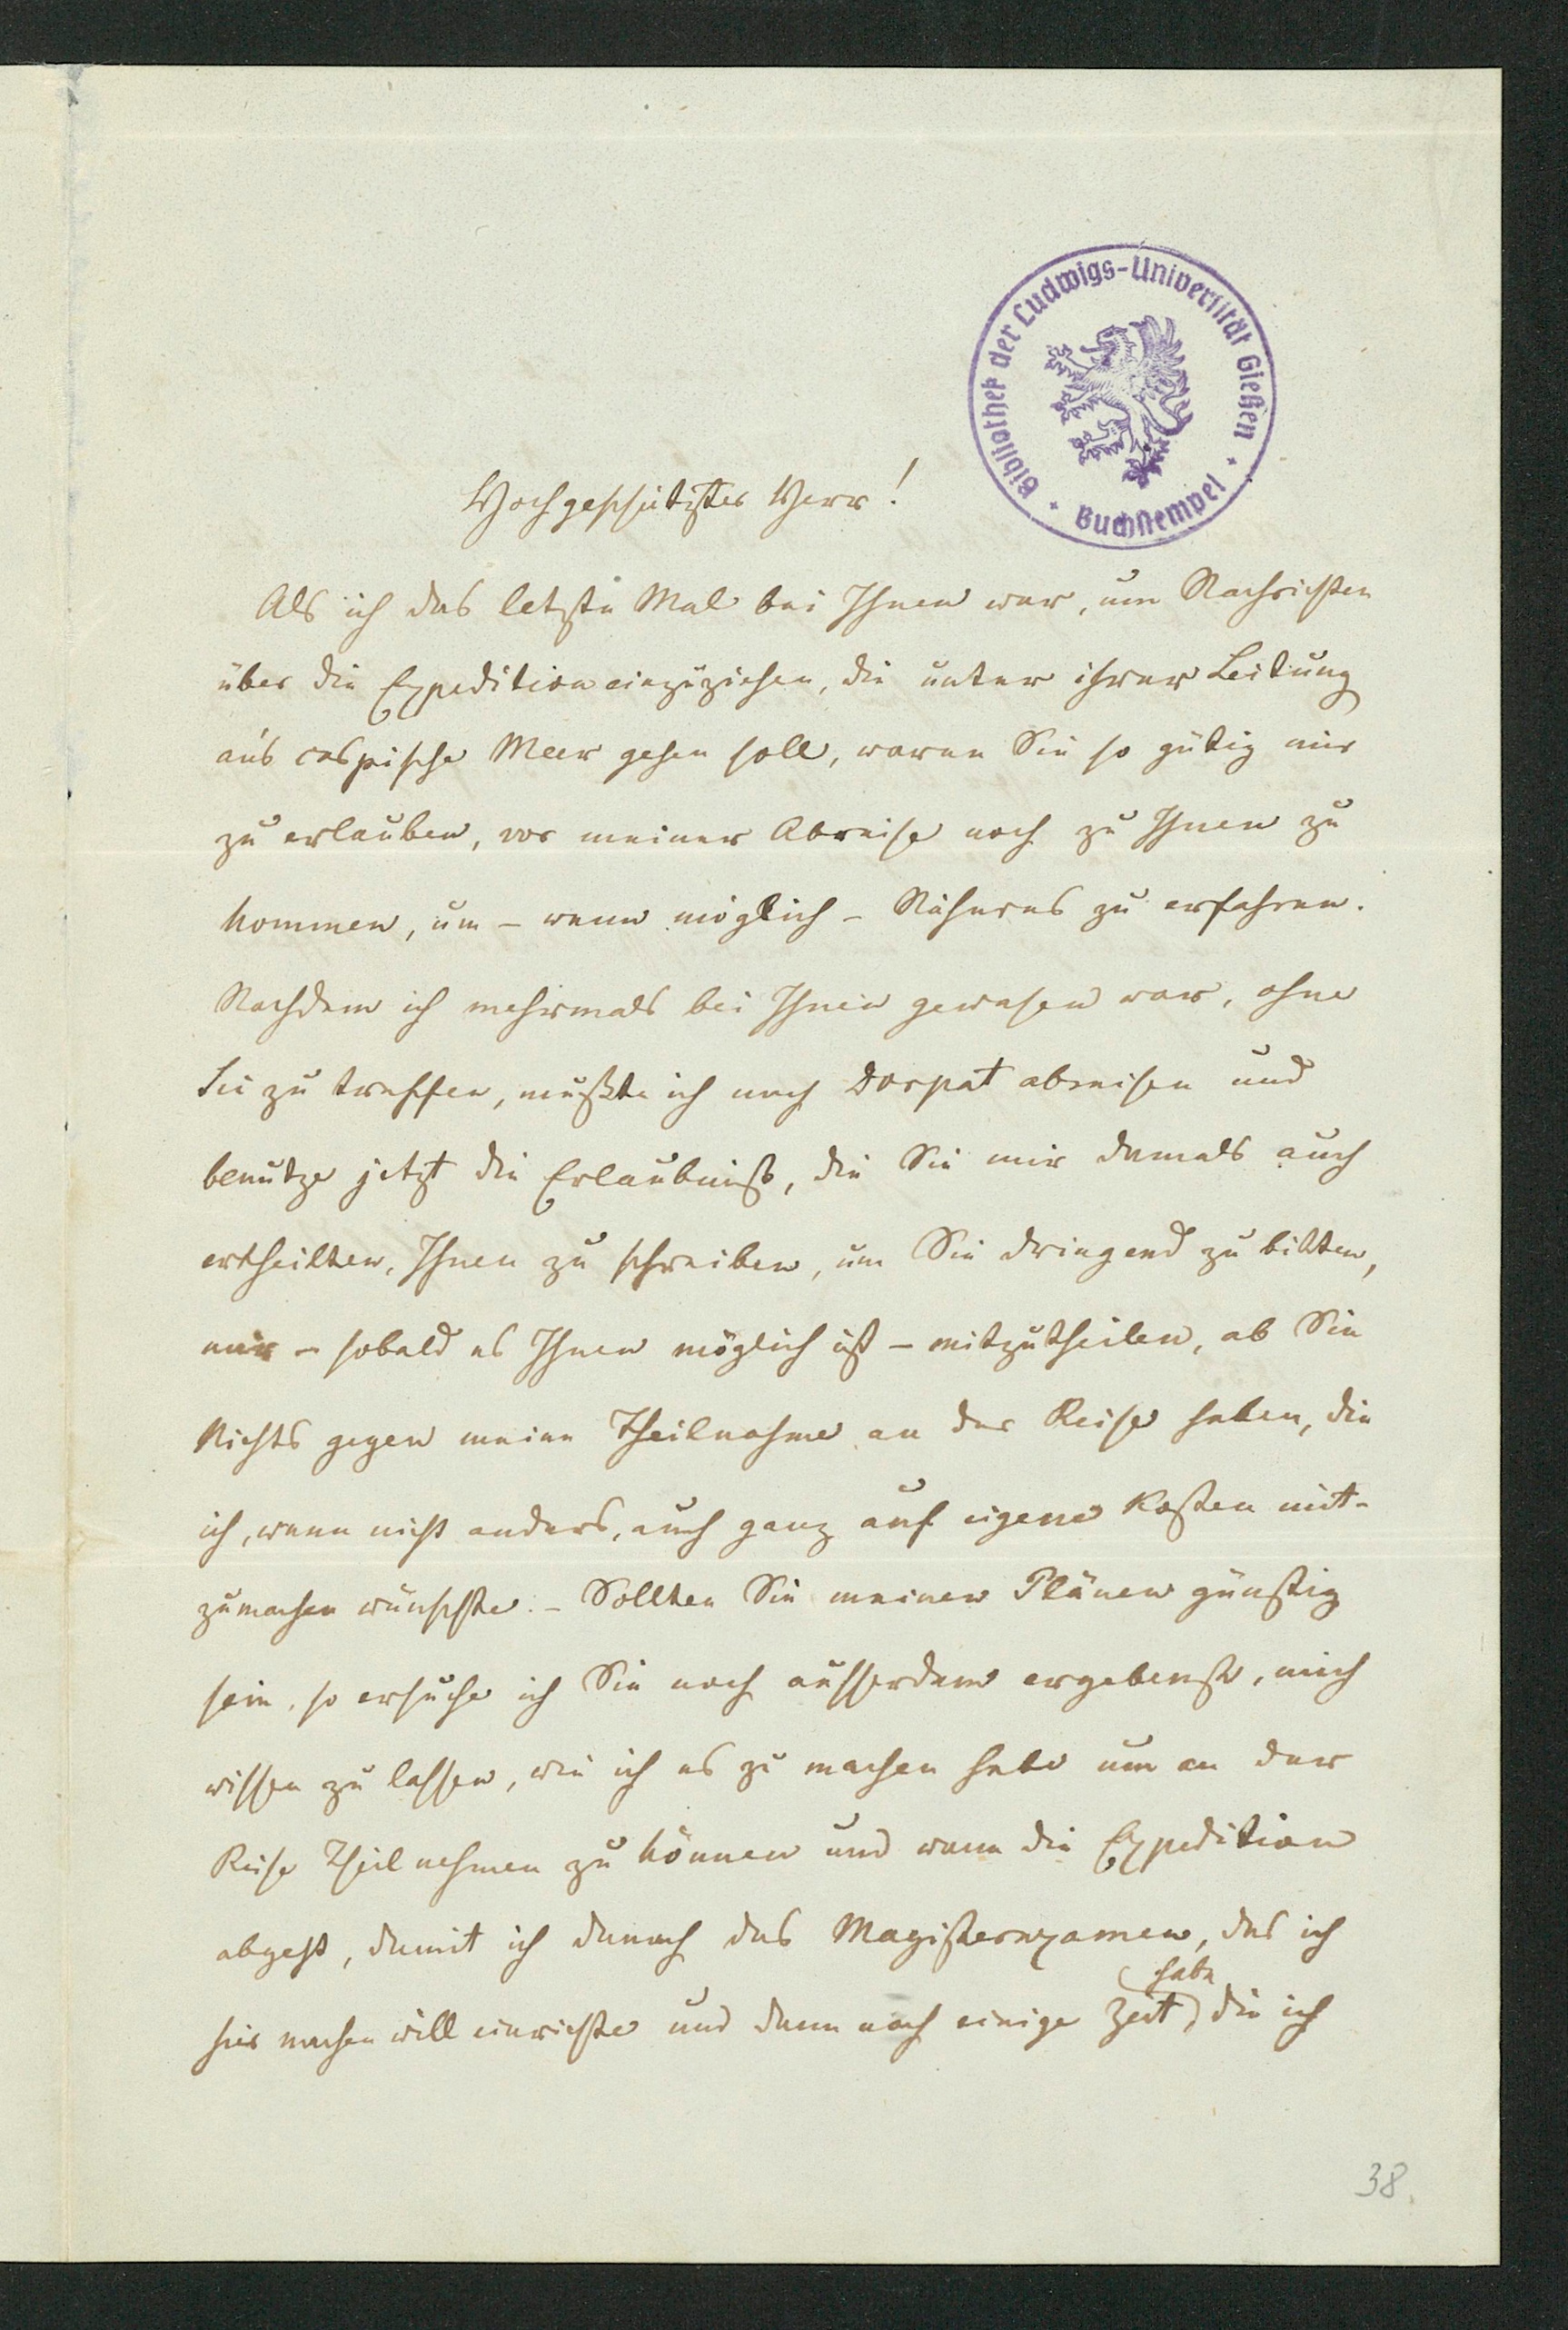 Bibliothek der Ludwigs-Universität Gießen
Buchstempel
Hochgeschätzter Herr!
Als ich das letzte Mal bei Ihnen war, um Nachrichten
über die Expedition einzuziehen, die unter ihrer Leitung
an's caspische Meer gehen soll, waren Sie so gütig mir
zu erlauben, vor meiner Abreise noch zu Ihnen zu
kommen, um – wenn möglich – Näheres zu erfahren.
Nachdem ich mehrmals bei Ihnen gewesen war, ohne
Sie zu treffen, mußte ich nach Dorpat abreisen und
benutze jetzt die Erlaubniß, die Sie mir damals auch
ertheilten, Ihnen zu schreiben, um Sie dringend zu bitten,
mir – sobald es Ihnen möglich ist – mitzutheilen, ob Sie
Nichts gegen meine Theilnahme an der Reise haben, die
ich, wenn nicht anders, auch ganz auf eigene Kosten mit-
zumachen wünschte. – Sollten Sie meinen Plänen günstig
sein, so ersuche ich Sie noch ausserdem ergebenst, mich
wissen zu lassen, wie ich es zu machen habe um an der
Reise Theil nehmen zu können und wann die Expedition
abgeht, damit ich danach das Magisterexamen, das ich
hier machen will einrichte und dann noch einige Zeit (habe) die ich
38.